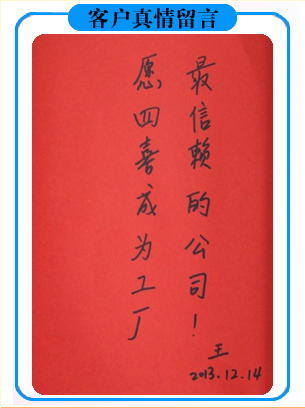 客户真情留言
愿四喜成为工厂
最信赖的公司！
王
2013.12.14